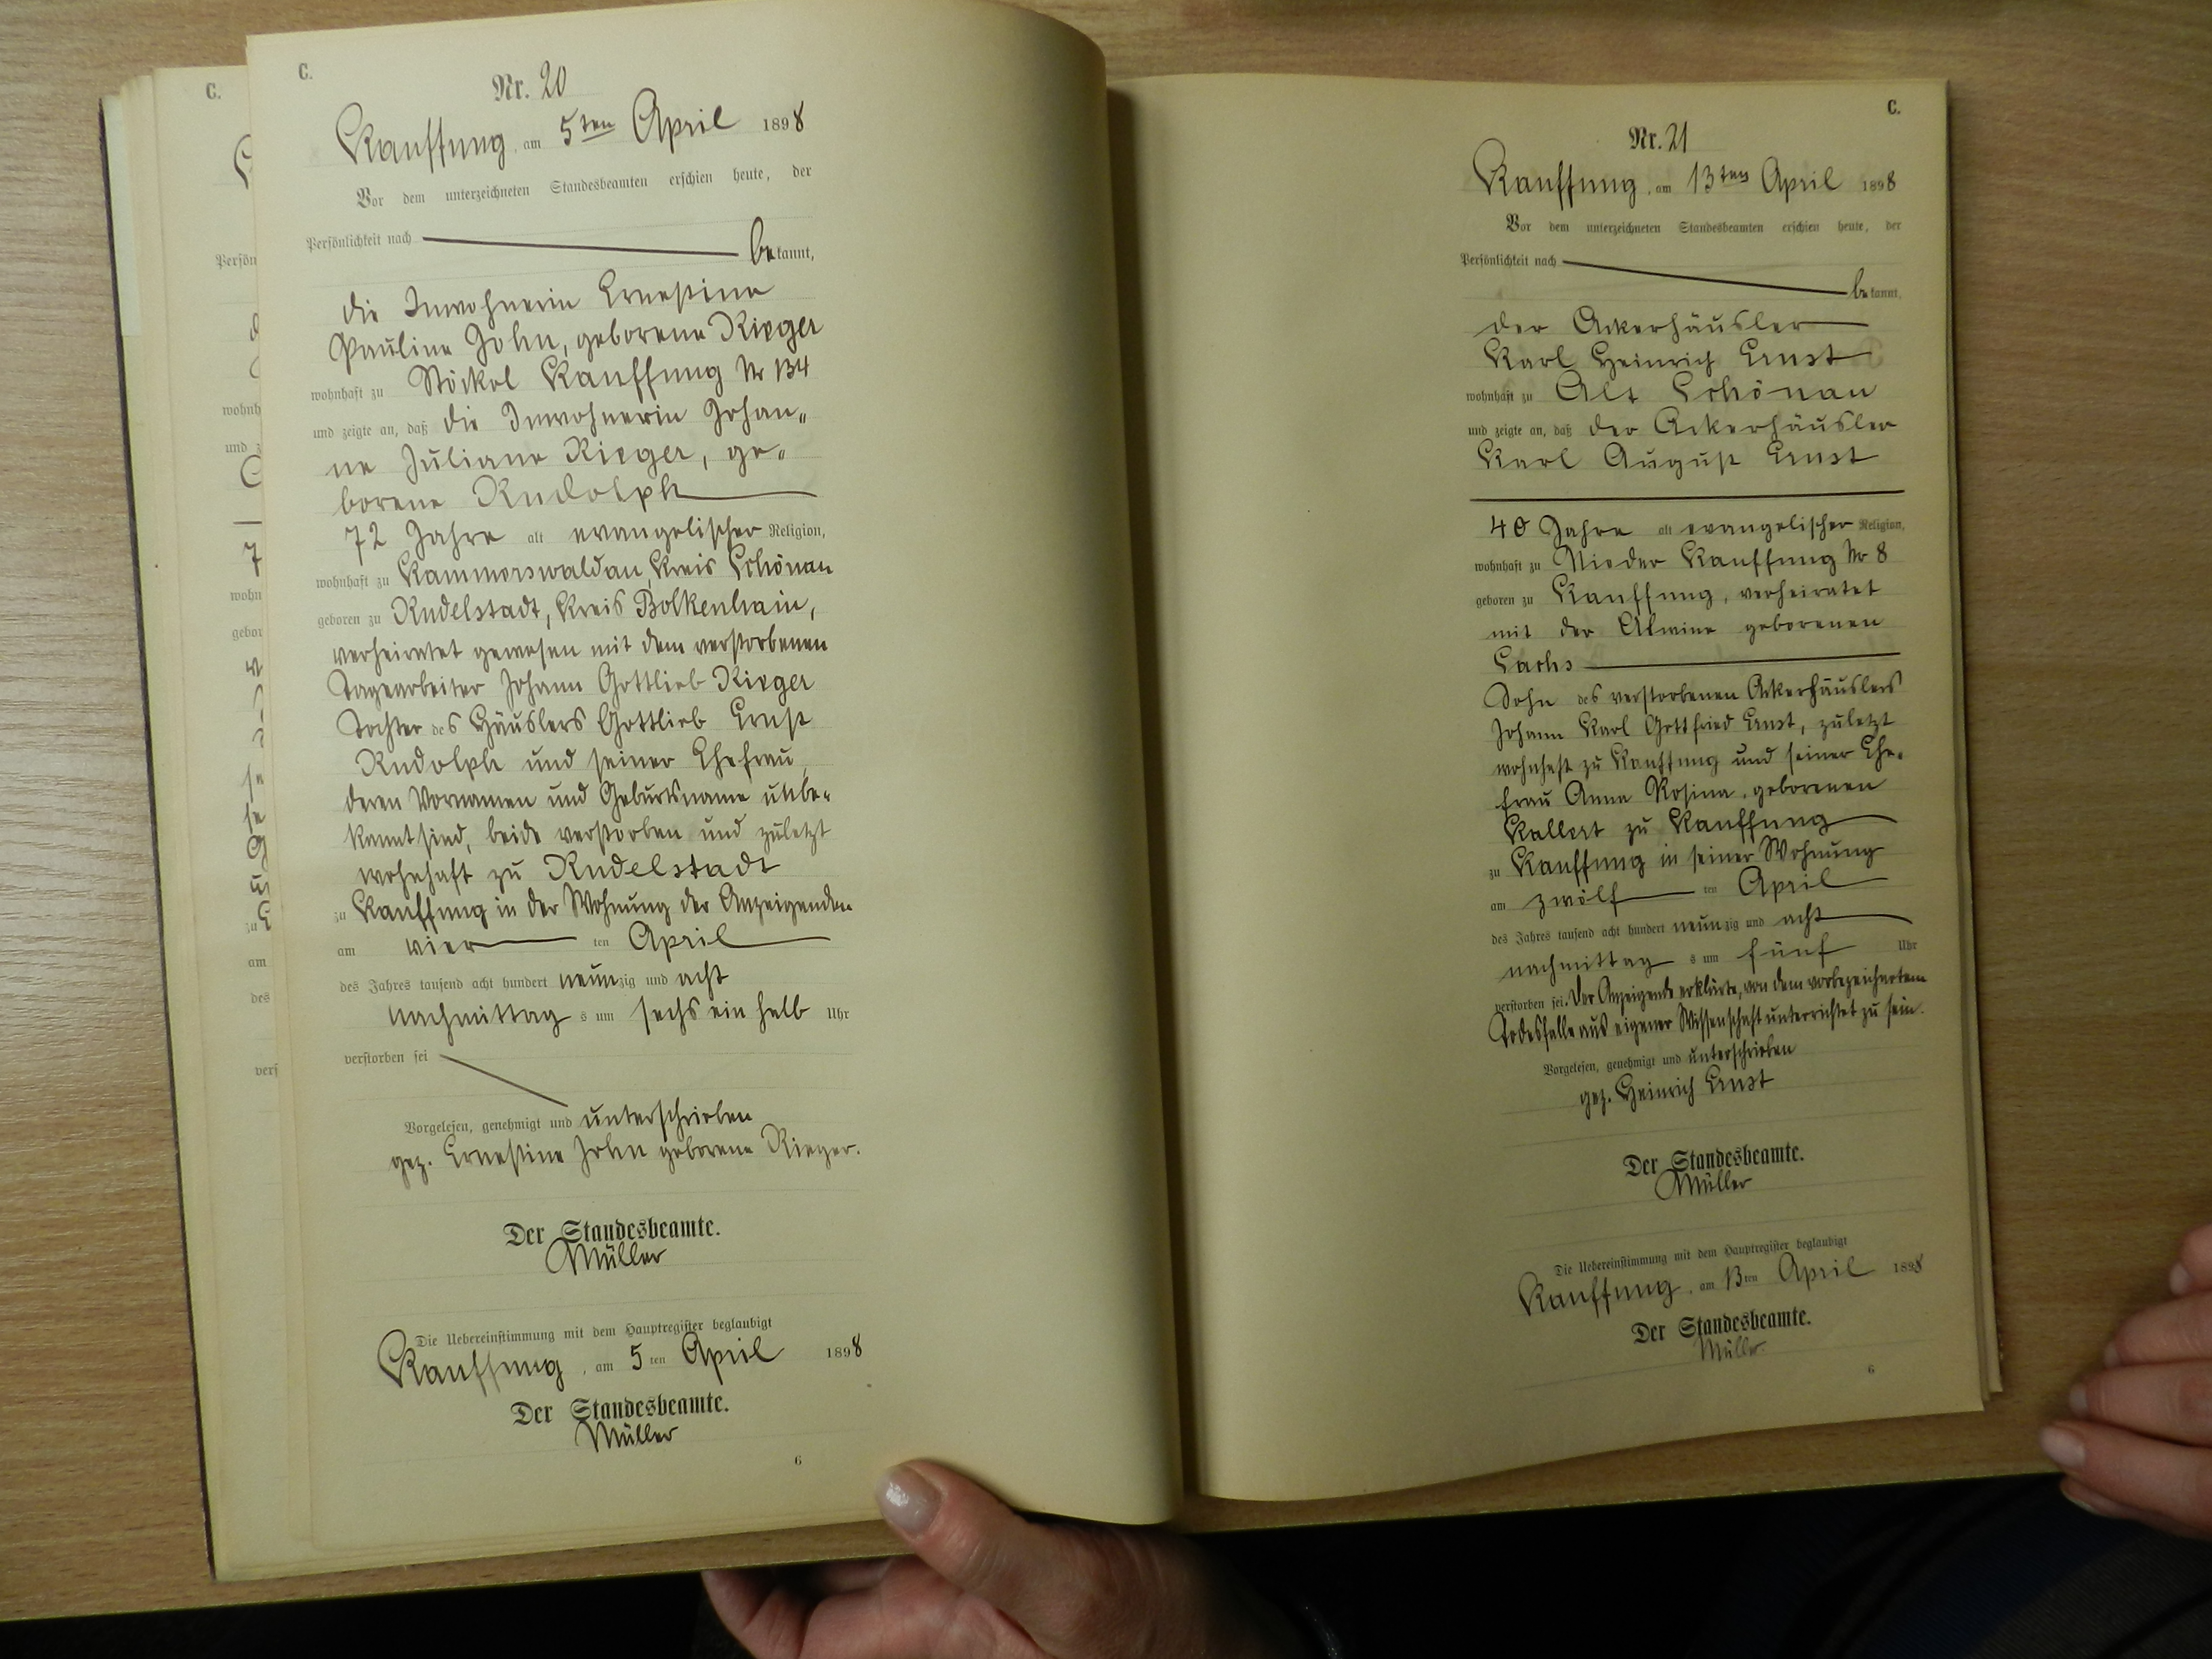 C.
Nr. 20
Kauffung, am 5ten April 1898
Vor dem unterzeichneten Standesbeamten erschien heute, der
Persönlichkeit nach bekannt,
die Inwohnerin Ernestine
Pauline John, geborene Rieger
wohnhaft zu Stöckel Kauffung Nr 134
und zeigte an, daß die Inwohnerin Johan„
ne Juliane Rieger, ge„
borene Rudolph
72 Jahre alt evangelischer Religion,
wohnhaft zu Kammerswaldau, Kreis Schönau
geboren zu Rudelstadt, Kreis Bolkenhain,
verheiratet gewesen mit dem verstorbenen
Tagearbeiter Johann Gottlieb Rieger
Tochter des Häuslers Gottlieb Ernst
Rudolph und seiner Ehefrau,
deren Vornamen und Geburtsname unbe„
kannt sind, beide verstorben und zuletzt
wohnhaft zu Rudelstadt
zu Kauffung in der Wohnung der Anzeigenden
am vierten April
des Jahres tausend acht hundert neunzig und acht
nachmittags um sechs ein halb Uhr
verstorben sei
Vorgelesen, genehmigt und unterschrieben
gez. Ernestine John geborene Rieger.
Der Standesbeamte.
Müller
Die Uebereinstimmung mit dem Hauptregister beglaubigt
Kauffung, am 5ten April 1898
Der Standesbeamte.
Müller
6
C.
Nr. 21
Kauffung, am 13ten April 1898
Vor dem unterzeichneten Standesbeamten erschien heute, der
Persönlichkeit nach bekannt,
der Ackerhäusler
Karl Heinrich Ernst
wohnhaft zu Alt Schönau
und zeigte an, daß der Ackerhäusler
Karl August Ernst
40 Jahre alt evangelischer Religion,
wohnhaft zu Nieder Kauffung Nr 8
geboren zu Kauffung, verheiratet
mit der Alwine geborenen
Sachs
Sohn des verstorbenen Ackerhäuslers
Johann Karl Gottfried Ernst, zuletzt
wohnhaft zu Kauffung und seiner Ehe„
frau Anna Rosina, geborenen
Kallert zu Kauffung
zu Kauffung in seiner Wohnung
am zwölften April
des Jahres tausend acht hundert neunzig und acht
nachmittags um fünf Uhr
verstorben sei. Der Anzeigende erklärte, von dem vorbezeichneten
Todesfalle aus eigener Wissenschaft unterrichtet zu sein.
Vorgelesen, genehmigt und unterschrieben
gez. Heinrich Ernst
Der Standesbeamte.
Müller
Die Uebereinstimmung mit dem Hauptregister beglaubigt
Kauffung, am 13ten April 1898
Der Standesbeamte.
Müller
6